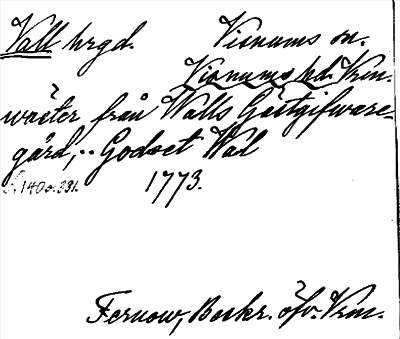 Vall hrgd. Visnums sn.
Visnums hd. Vrm.
wäster från Walls Gästgifware-
gård,.. Godset Wal
s. 140 o. 231. 1773.
Fernow, Beskr. öfv. Vrm.